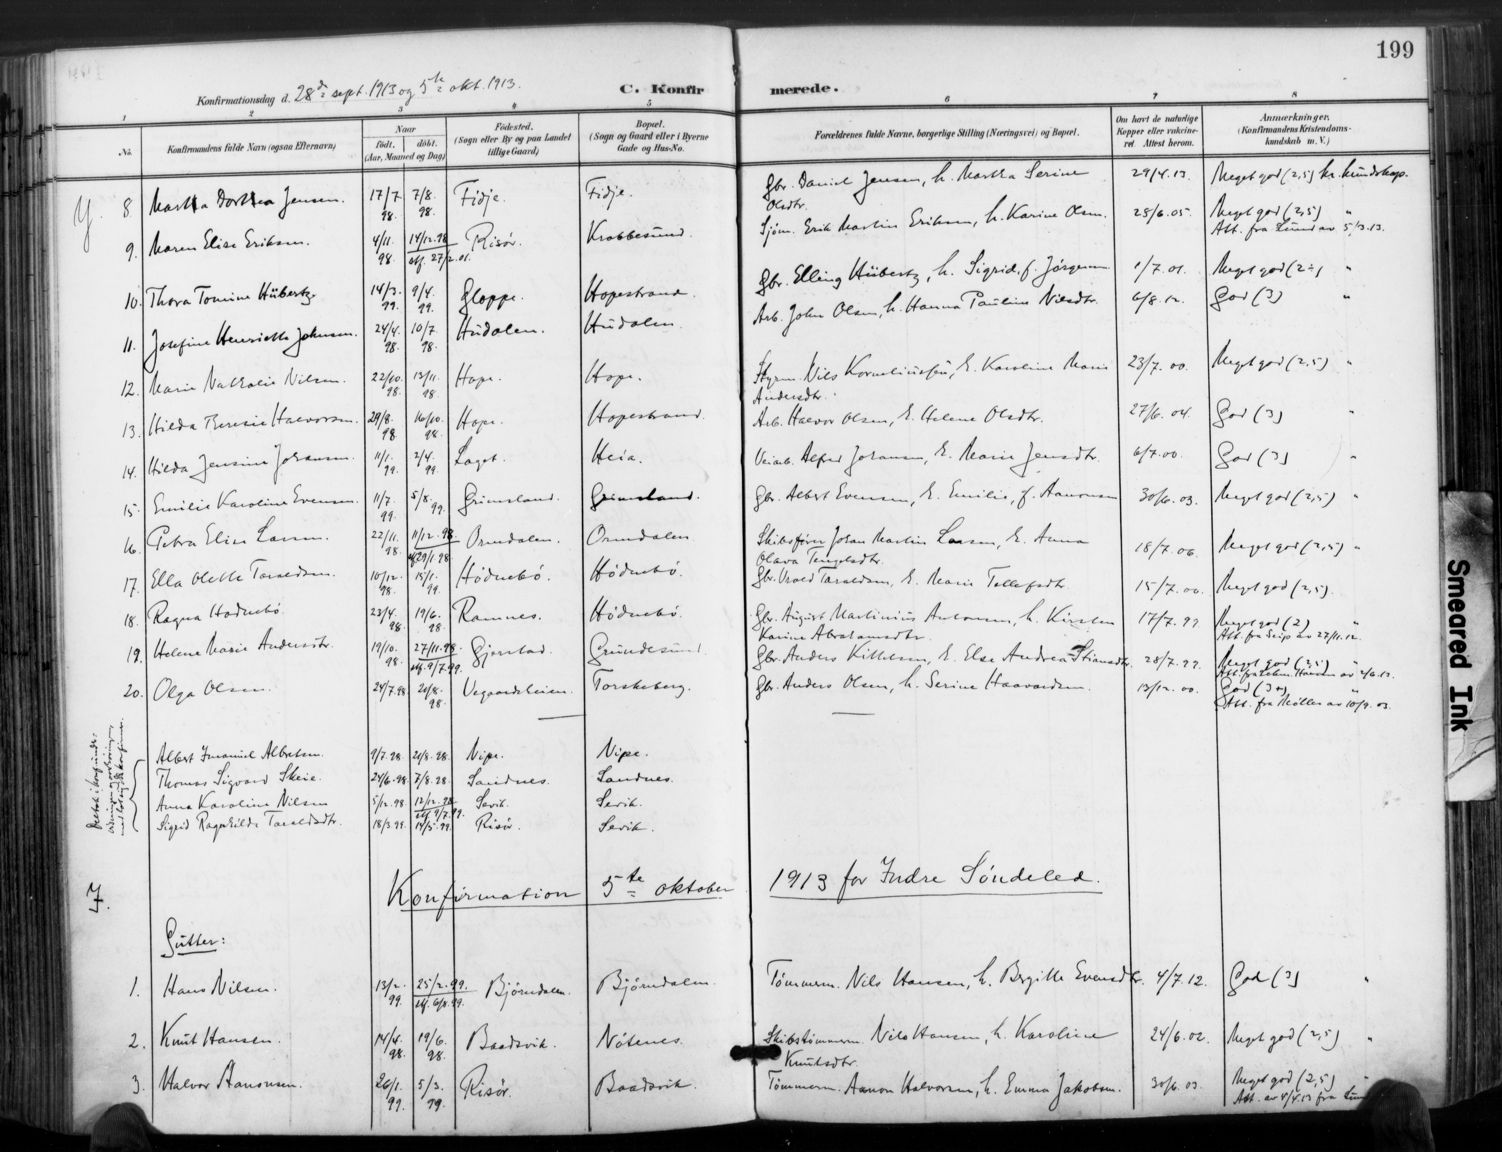 199
Konfirmationsdag d. 28de sept. 1913 og 5te okt. 1913.
C. Konfirmerede.
1 2 3 4 5 6 7 8
No. Konfirmandens fulde Navn (ogsaa Efternavn) Naar født. døbt. (Aar, Maaned og Dag) Fødested. (Sogn eller By og paa Landet tillige Gaard) Bopæl. (Sogn og Gaard eller i Byerne Gade og Hus-No. Forældrenes fulde Navne, borgerlige Stilling (Næringsvei) og Bopæl. Om havt de naturlige Kopper eller vaccineret. Attest herom. Anmerkninger. (Konfirmandens Kristendomskundskab m. V.)
8 Martha Dorthea Jensen. 17/7 98. 7/8. 98. Fidje. Fidje. Gbr. Daniel Jensen, h. Martha Serine Olsdtr. 29/4.13. Meget god (2,5) kr. kundskap.
9. Maren Elise Eriksen. 4/11. 98. 14/12.98 stf. 27/2.01. Risør. Krabbesund. Sjøm. Erik Martin Eriksen, h. Karine Olsen. 25/6.05. Meget god (2,5) "
Att. fra Lund av 5/3.13.
10. Thora Tomine Hübertz. 14/3. 99. 9/4. 99. Gloppe. Hopestrand. Gbr. Elling Hübertz, h. Sigrid, f. Jørgensen 1/7.01. Meget god (2÷) "
11. Josefine Henriette Johnsen. 24/4. 98. 10/7. 98. Hüdalen. Hüdalen. Arb. John Olsen, h. Hanna Pauline Nilsdtr. 6/8.12. God (3) "
12. Marie Nathalie Nilsen. 22/10. 98. 13/11. 98. Hope. Hope. Styrm. Nils Korneliussen, E. Karoline Marie Andersdtr. 23/7.00. Meget god (2,5) "
13. Hilda Theresie Halvorsen. 29/8. 98 16/10. 98. Hope. Hopestrand. Arb. Halvor Olsen, E. Helene Olsdtr. 27/6.04. God (3) "
14. Hilda Jensine Johansen. 11/1. 99. 2/4. 99. Laget. Heia. Veiarb. Alfred Johansen, E. Marie Jensdtr. 6/7.00. God (3) "
15. Emilie Karoline Evensen. 11/7. 99. 5/8. 99. Grimsland. Grimsland. Gbr. Albert Evensen, E. Emilie, f. Aanonsen 30/6.03. Meget god (2,5) "
16. Petra Elise Larsen. 22/11. 98. 11/12.98. stf. 29/1.98. Ormdalen. Ormdalen Skibsfører Johan Martin Larsen, E. Anna Olava Tengelsdtr. 18/7.06. Meget god (2,5) "
17. Ella Olette Taraldsen. 10/12. 98. 15/1. 99. Hødnebø. Hødnebø. Gbr. Taraldsen, E. Marie Tellefsdtr. 15/7.00. Meget god (2,5).
18. Ragna Hødnebø 23/4. 98. 19/6. 98. Ramnes. Hødnebø. Gbr. August Martinius Antonsen, h. Kirsten Karine Abrahamsdtr. 17/7.99 Meget god (2) "
Att. fra Seip av 27/11.12.
19. Helene Marie Andersdtr. 19/10. 98. 27/11.98. stf. 9/7.99. Gjerstad. Gründesund Gbr. Anders Kittelsen, E. Else Andrea Stiansdtr. 28/7.99. Meget god (2,5) "
20. Olga Olsen. 24/7.98 20/8. 98. Vegaardsheien. Torskeberg. Gbr. Anders Olsen, h. Serine Haavardsen. 13/12.00. God (3+) "
Att. fra Møller av 10/9.03.
Albert Emanuel Albretsen. 9/7.98 20/8.98. Nipe. Nipe.
Thomas Sigvard Skeie. 24/6.98 7/8.98. Sandnes. Sandnes.
Anna Karoline Nilsen 5/12.98 12/12.98 stf. 9/7.99. Sevik. Sevik.
Sigrid Ragnhilde Taraldsdtr. 18/3.99. 14/5.99. Risør. Sevik.
7.
Konfirmation 5te oktober 1913 for Indre Søndeled.
Gutter:
1. Hans Nilsen. 13/2. 99. 25/2.99. stf. 6/8.99. Bjørndalen. Bjørndalen. Tømmerm. Nils Hansen, h. Bergitte Evensdtr. 4/7.12. God (3) "
2. Knut Hansen. 14/4. 98. 19/6. 98. Baadsvik. Nötenes. Skibstømmerm. Nils Hansen, h. Karoline Knutsdtr. 24/6.02. Meget god (2,5) "
3. Halvor Aanonsen. 26/1. 99. 5/3. 99. Risør. Baadsvik. Tømmerm. Aanon Halvorsen, h. Emma Jakobsen. 30/6.03. Meget god (2,5) "
Att. av 4/4.13 fra Lund
Smeared Ink